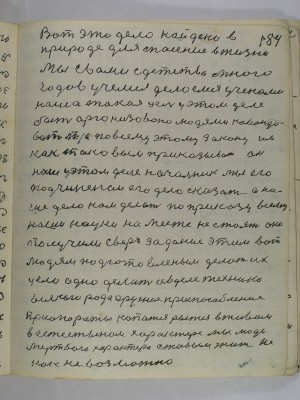 184
Вот это дело найдено в
природе для спасение в жизни
Мы с вами с детства много
годов учимся делаемся учеными
наша такая цель у этом деле
быть организовано людями командо-
вать по всему этому закону им
как таковым приказывать он
наш у этом деле начальник мы его
подчиненным его дело сказать а на-
ше дело нам делать по приказу всему
наши науки на месте не стоят они
получили сверх задание этим вот
людям подготовленым делать их
цело одно делать
всякого рода оружие приспособление
аппараты копатся рытся в живом
в естественом характере мы люди
мертвого характера с таковым жить не
как не возможно